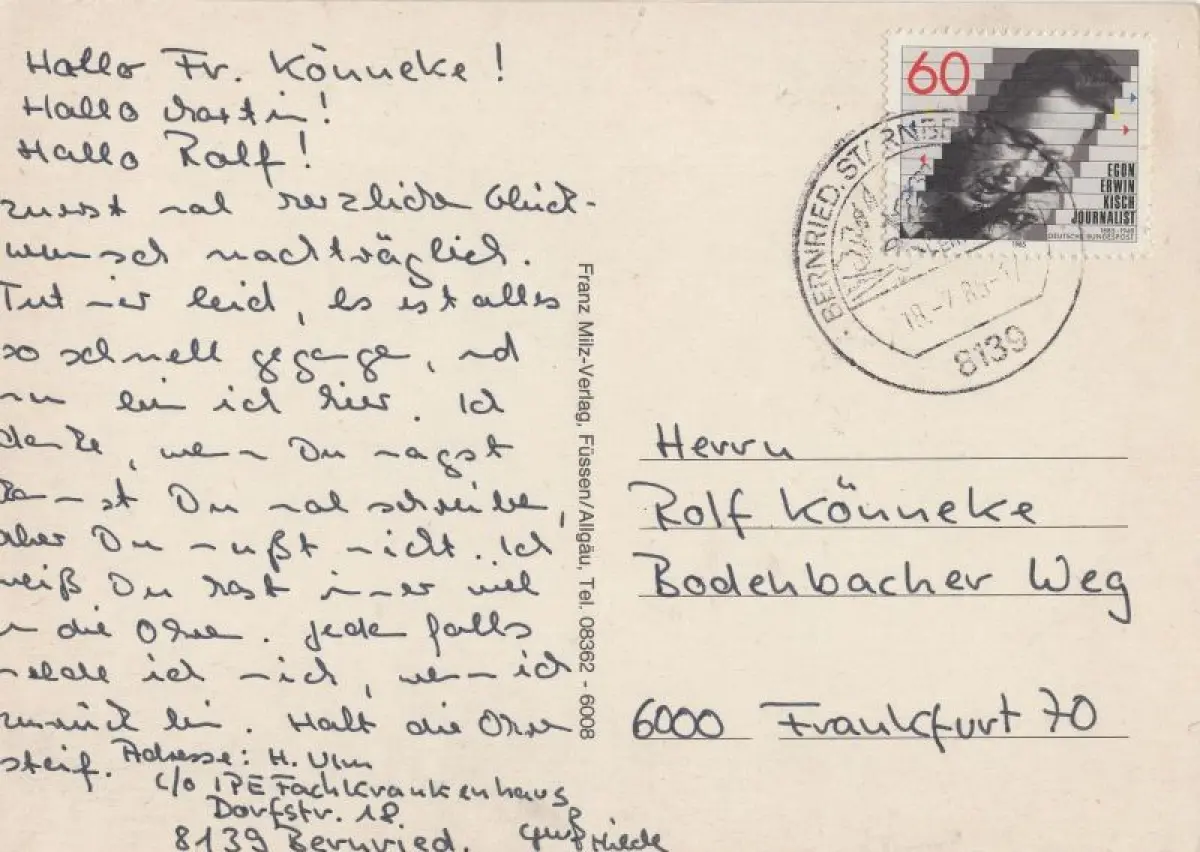 Hallo Fr. Könneke!
Hallo Martin!
Hallo Rolf!
zuerst mal herzlichen Glück-
wunsch nachträglich.
Tut mir leid, es ist alles
so schnell gegangen, und
nun bin ich hier. Ich
denke, wenn Du magst
kannst Du mal schreiben,
aber Du mußt nicht. Ich
weiß Du hast immer viel
um die Ohren. jeden falls
melde ich mich, wenn ich
zurück bin. Halt die Ohren
steif. Adresse: H. Ulm
c/o IPE Fachkrankenhaus
Dorfstr. 18
8139 Bernried.
Gruß Hilde
Franz Milz-Verlag, Füssen/Allgäu, Tel. 08362 - 6008
60
EGON
ERWIN
KISCH
JOURNALIST
1885-1948
DEUTSCHE BUNDESPOST
1985
BERNRIED, STARNB
18.-7.85-17
8139
Herrn
Rolf Könneke
Bodenbacher Weg
6000 Frankfurt 70